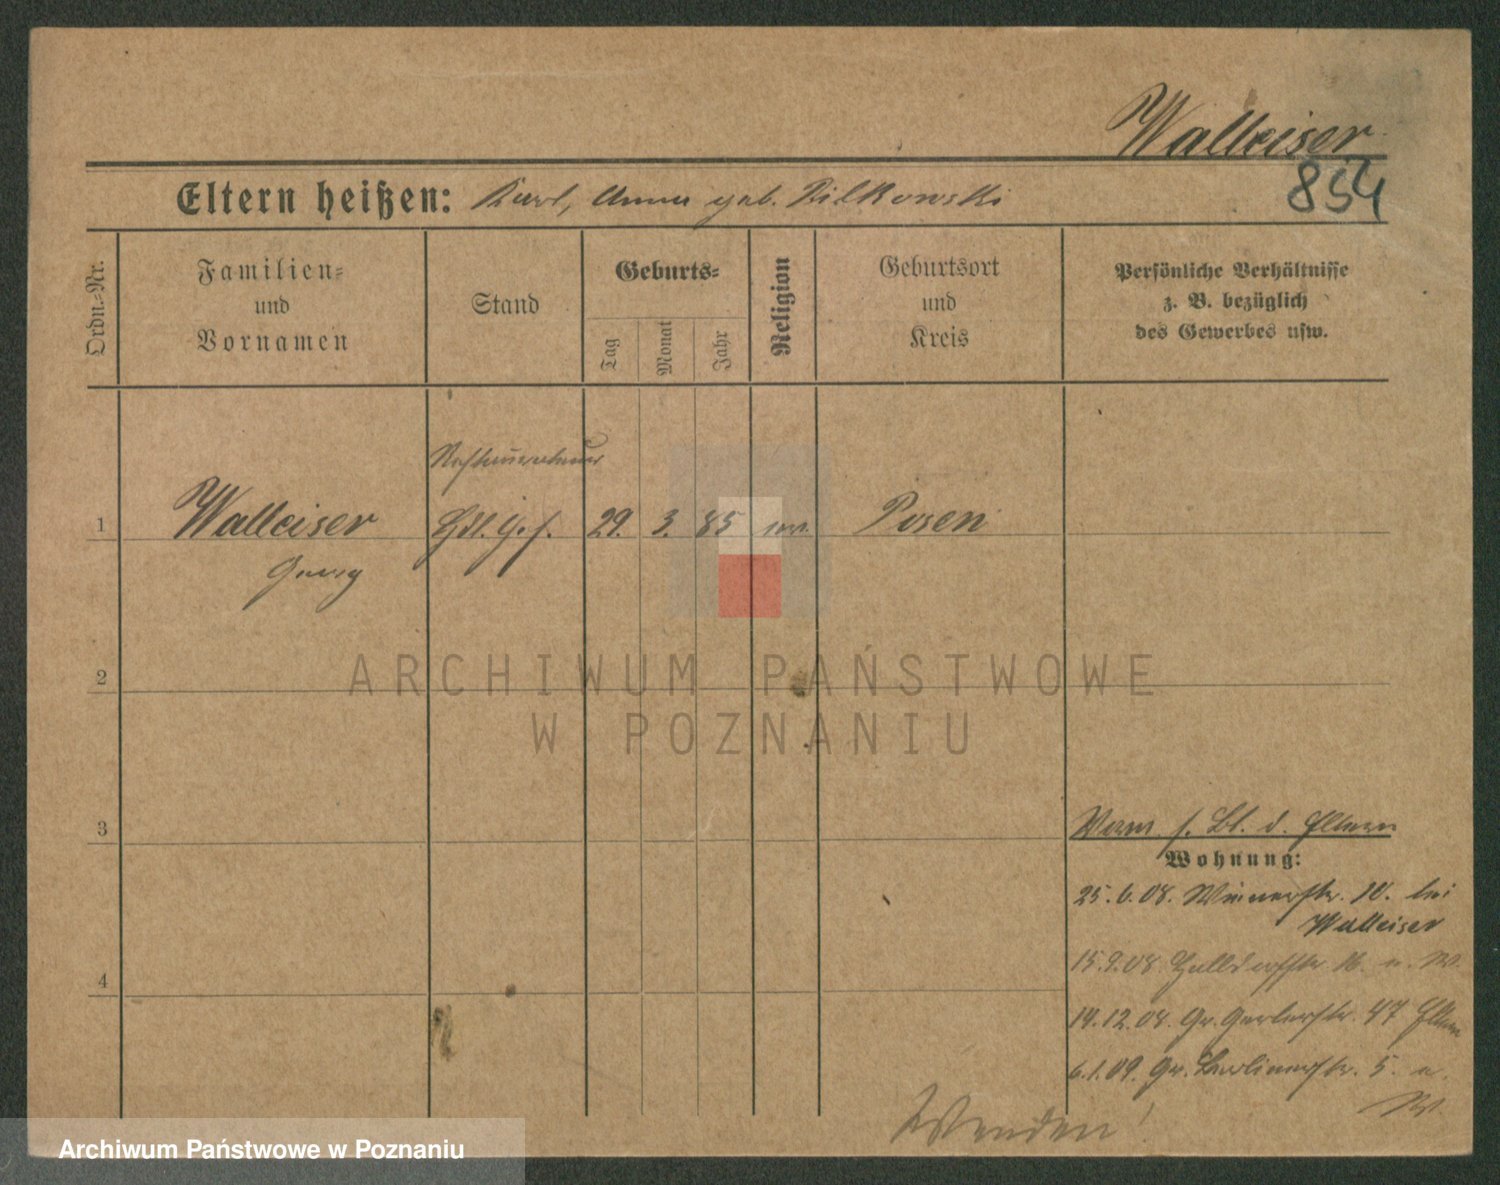 Walleiser
854
Eltern heißen: Karl, Anna geb. Rilkowski
Ordn.-Nr.
Familien-
und
Vornamen
Stand
Geburts-
Tag
Monat
Jahr
Religion
Geburtsort
und
Kreis
Persönliche Verhältnisse
z. B. bezüglich
des Gewerbes usw.
Restaurateur
1 Walleiser Hdl. G. f. 29. 3. 85 Posen
Georg
2
3
Vorm. s. Bl. d. Eltern
Wohnung:
25.6.08. 10. bei
Walleiser
4
15.9.08 16. u. W.
14.12.08. Gr. Gerberstr. 47 Eltern
6.1.09. Gr. Berlinerstr. 5. u.
W.
Wenden!
ARCHIWUM PAŃSTWOWE
W POZNANIU
Archiwum Państwowe w Poznaniu